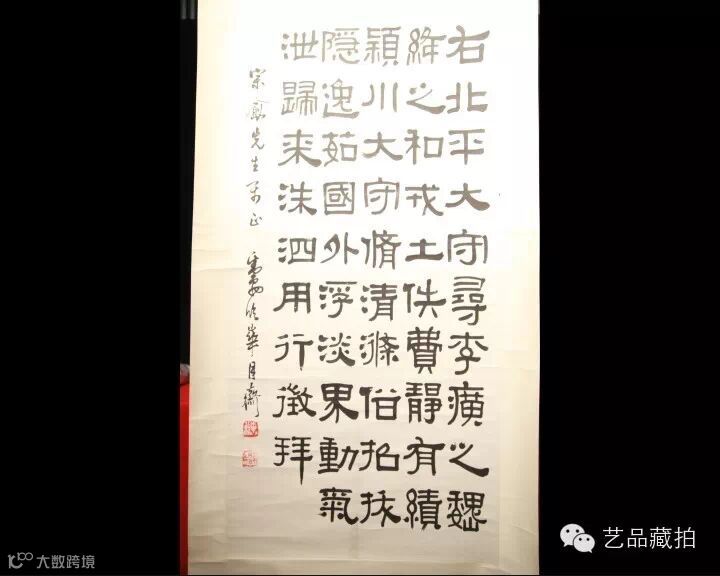 右北平大守尋李廣之魏
絳之和戎士佚費靜有績
穎川大守脩清滌俗招拔
隱逸茹國外浮淡果動氣
泄歸來洙泗用行徵拜
宗鳳先生 正
艺品藏拍
大数跨境